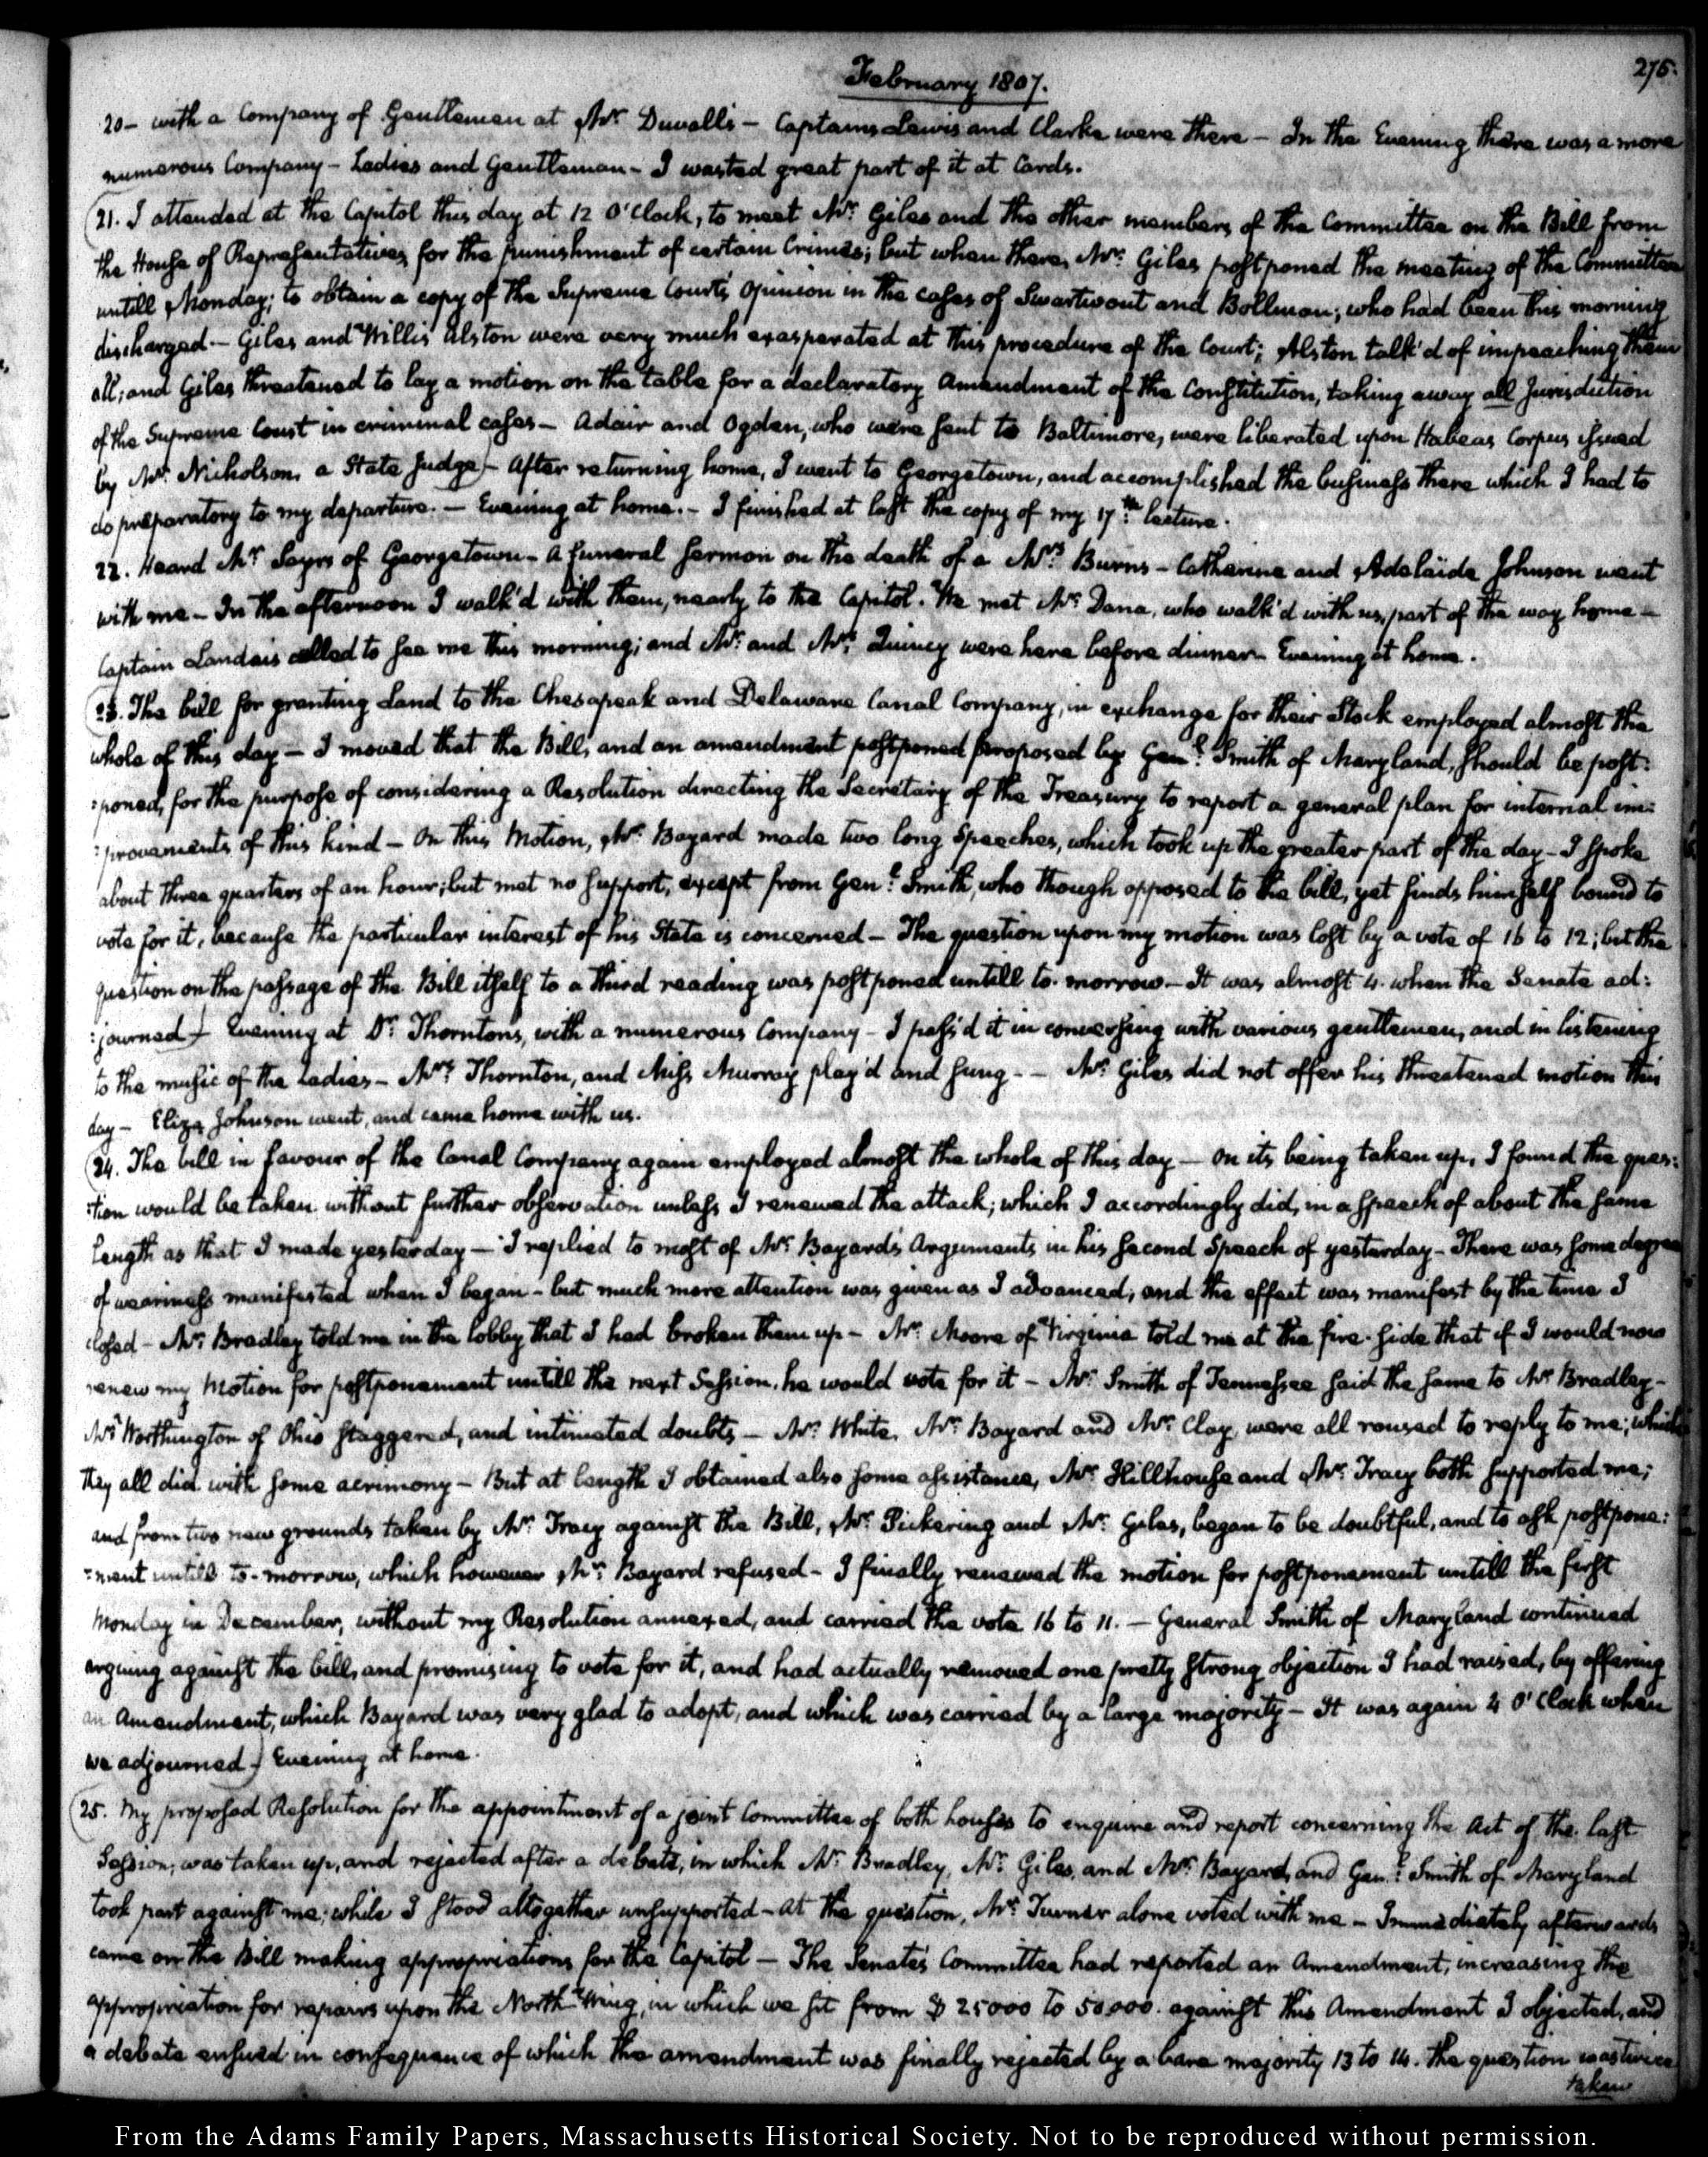 February 1807.
275.
20 – with a Company of Gentlemen at Mr. Duvall's – Captains Lewis and Clarke were there – In the Evening there was a more
numerous Company – Ladies and Gentleman – I wasted great part of it at Cards.
21. I attended at the Capitol this day at 12 O'Clock, to meet Mr. Giles and the other members of the Committee on the Bill from
the House of Representatives, for the punishment of certain Crimes; but when there, Mr. Giles postponed the meeting of the Committee
untill Monday; to obtain a copy of the Supreme Court's Opinion in the cases of Swartwout and Bollman; who had been this morning
discharged. – Giles and Willis Alston were very much exasperated at this procedure of the Court; Alston talk'd of impeaching them
all; and Giles threatened to lay a motion on the table for a declaratory Amendment of the Constitution, taking away all Jurisdiction
of the Supreme Court in criminal cases – Adair and Ogden, who were sent to Baltimore, were liberated upon Habeas Corpus issued
by Mr. Nicholson, a State Judge) – After returning home, I went to Georgetown, and accomplished the business there which I had to
do preparatory to my departure. – Evening at home. – I finished at last the copy of my 17th lecture.
22. Heard Mr. Sayrs of Georgetown – A funeral sermon on the death of a Mrs. Burns – Catherine and Adelaide Johnson went
with me – In the afternoon I walk'd with them, nearly to the Capitol. We met Mr. Dana, who walk'd with us, part of the way home –
Captain Landais called to see me this morning; and Mr. and Mrs. Quincy were here before dinner – Evening at home.
23. The bill for granting Land to the Chesapeak and Delaware Canal Company, in exchange for their Stock employed almost the
whole of this day – I moved that the Bill, and an amendment postponed proposed by Genl. Smith of Maryland, should be post:
:poned, for the purpose of considering a Resolution directing the Secretary of the Treasury to report a general plan for internal im:
:provements of this kind – On this Motion, Mr. Bayard made two long Speeches, which took up the greater part of the day – I spoke
about three quarters of an hour; but met no support, except from Genl. Smith, who though opposed to the bill, yet finds himself bound to
vote for it, because the particular interest of his State is concerned – The question upon my motion was lost by a vote of 16 to 12; but the
question on the passage of the Bill itself to a third reading was postponed untill to-morrow – It was almost 4. when the Senate ad:
:journed) – Evening at Dr. Thornton's, with a numerous Company – I pass'd it in conversing with various gentlemen, and in listening
to the music of the Ladies – Mrs. Thornton, and Miss Murray play'd and sung – – Mr. Giles did not offer his threatened motion this
day – Eliza Johnson went, and came home with us.
24. The bill in favour of the Canal Company again employed almost the whole of this day – On its being taken up, I found the ques:
:tion would be taken without further observation unless I renewed the attack; which I accordingly did, in a speech of about the same
length as that I made yesterday – I replied to most of Mr. Bayard's Arguments in his second Speech of yesterday – There was some degree
of weariness manifested when I began – but much more attention was given as I advanced, and the effect was manifest by the time I
closed – Mr. Bradley told me in the lobby that I had broken them up – Mr. Moore of Virginia told me at the fire-side that if I would now
renew my Motion for postponement untill the next Session, he would vote for it – Mr. Smith of Tennessee said the same to Mr. Bradley –
Mr. Worthington of Ohio staggered, and intimated doubts – Mr. White, Mr. Bayard and Mr. Clay were all roused to reply to me; which
they all did with some acrimony – But at length I obtained also some assistance, Mr. Hillhouse and Mr. Tracy both supported me;
and from two new grounds taken by Mr. Tracy against the Bill, Mr. Pickering and Mr. Giles, began to be doubtful, and to ask postpone:
:ment untill to-morrow, which however Mr. Bayard refused – I finally renewed the motion for postponement untill the first
Monday in December, without my Resolution annexed, and carried the vote 16 to 11. – General Smith of Maryland continued
arguing against the bill, and promising to vote for it, and had actually removed one pretty strong objection I had raised, by offering
an Amendment, which Bayard was very glad to adopt, and which was carried by a large majority – It was again 4 O'Clock when
we adjourned.) Evening at home.
25. My proposed Resolution for the appointment of a joint Committee of both houses to enquire and report concerning the Act of the last
Session, was taken up, and rejected after a debate, in which Mr. Bradley, Mr. Giles, and Mr. Bayard, and Genl. Smith of Maryland
took part against me; while I stood altogether unsupported – At the question, Mr. Turner alone voted with me – Immediately afterwards
came on the Bill making appropriations for the Capitol – The Senate's Committee had reported an Amendment, increasing the
appropriation for repairs upon the North Wing, in which we sit from $25000 to 50,000. against this Amendment I objected, and
a debate ensued in consequence of which the amendment was finally rejected by a bare majority 13 to 14. the question was twice
taken
From the Adams Family Papers, Massachusetts Historical Society. Not to be reproduced without permission.